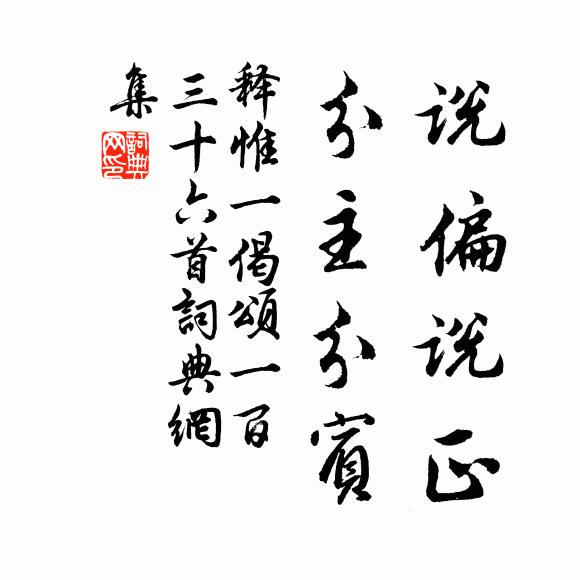 说偏说正
分主分賓
释惟一偈頌一百
三十六首詞典網
集
詞典网印